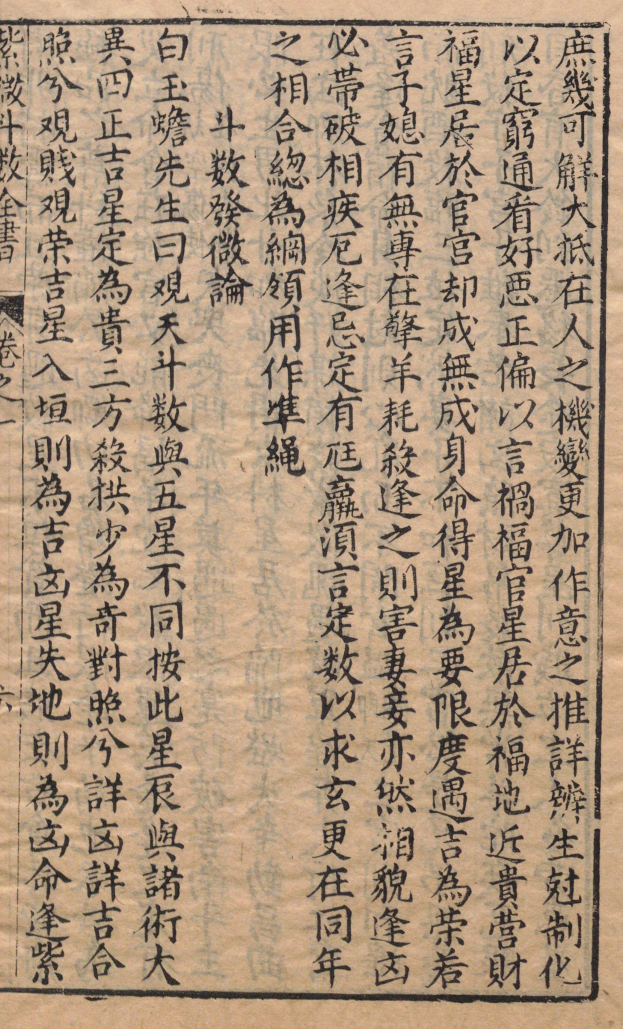 庶幾可觧大抵在人之機變更加作意之推詳辨生尅制化
以定窮通看好惡正偏以言禍福官星居於福地近貴营財
福星居於官宫却成無成身命得星為要限度遇吉為荣若
言子媳有無專在擎羊耗殺逢之則害妻妾亦然相貌逢凶
必帯破相疾厄逢忌定有尪羸湏言定数以求玄更在同年
之相合緫為綱領用作準繩
斗数發微論
白玉蟾先生曰观天斗数與五星不同按此星辰與諸術大
異四正吉星定為貴三方殺拱少為奇對照兮詳凶詳吉合
照兮观賤观荣吉星入垣則為吉凶星失地則為凶命逢紫
紫微斗数全書 卷之一 六